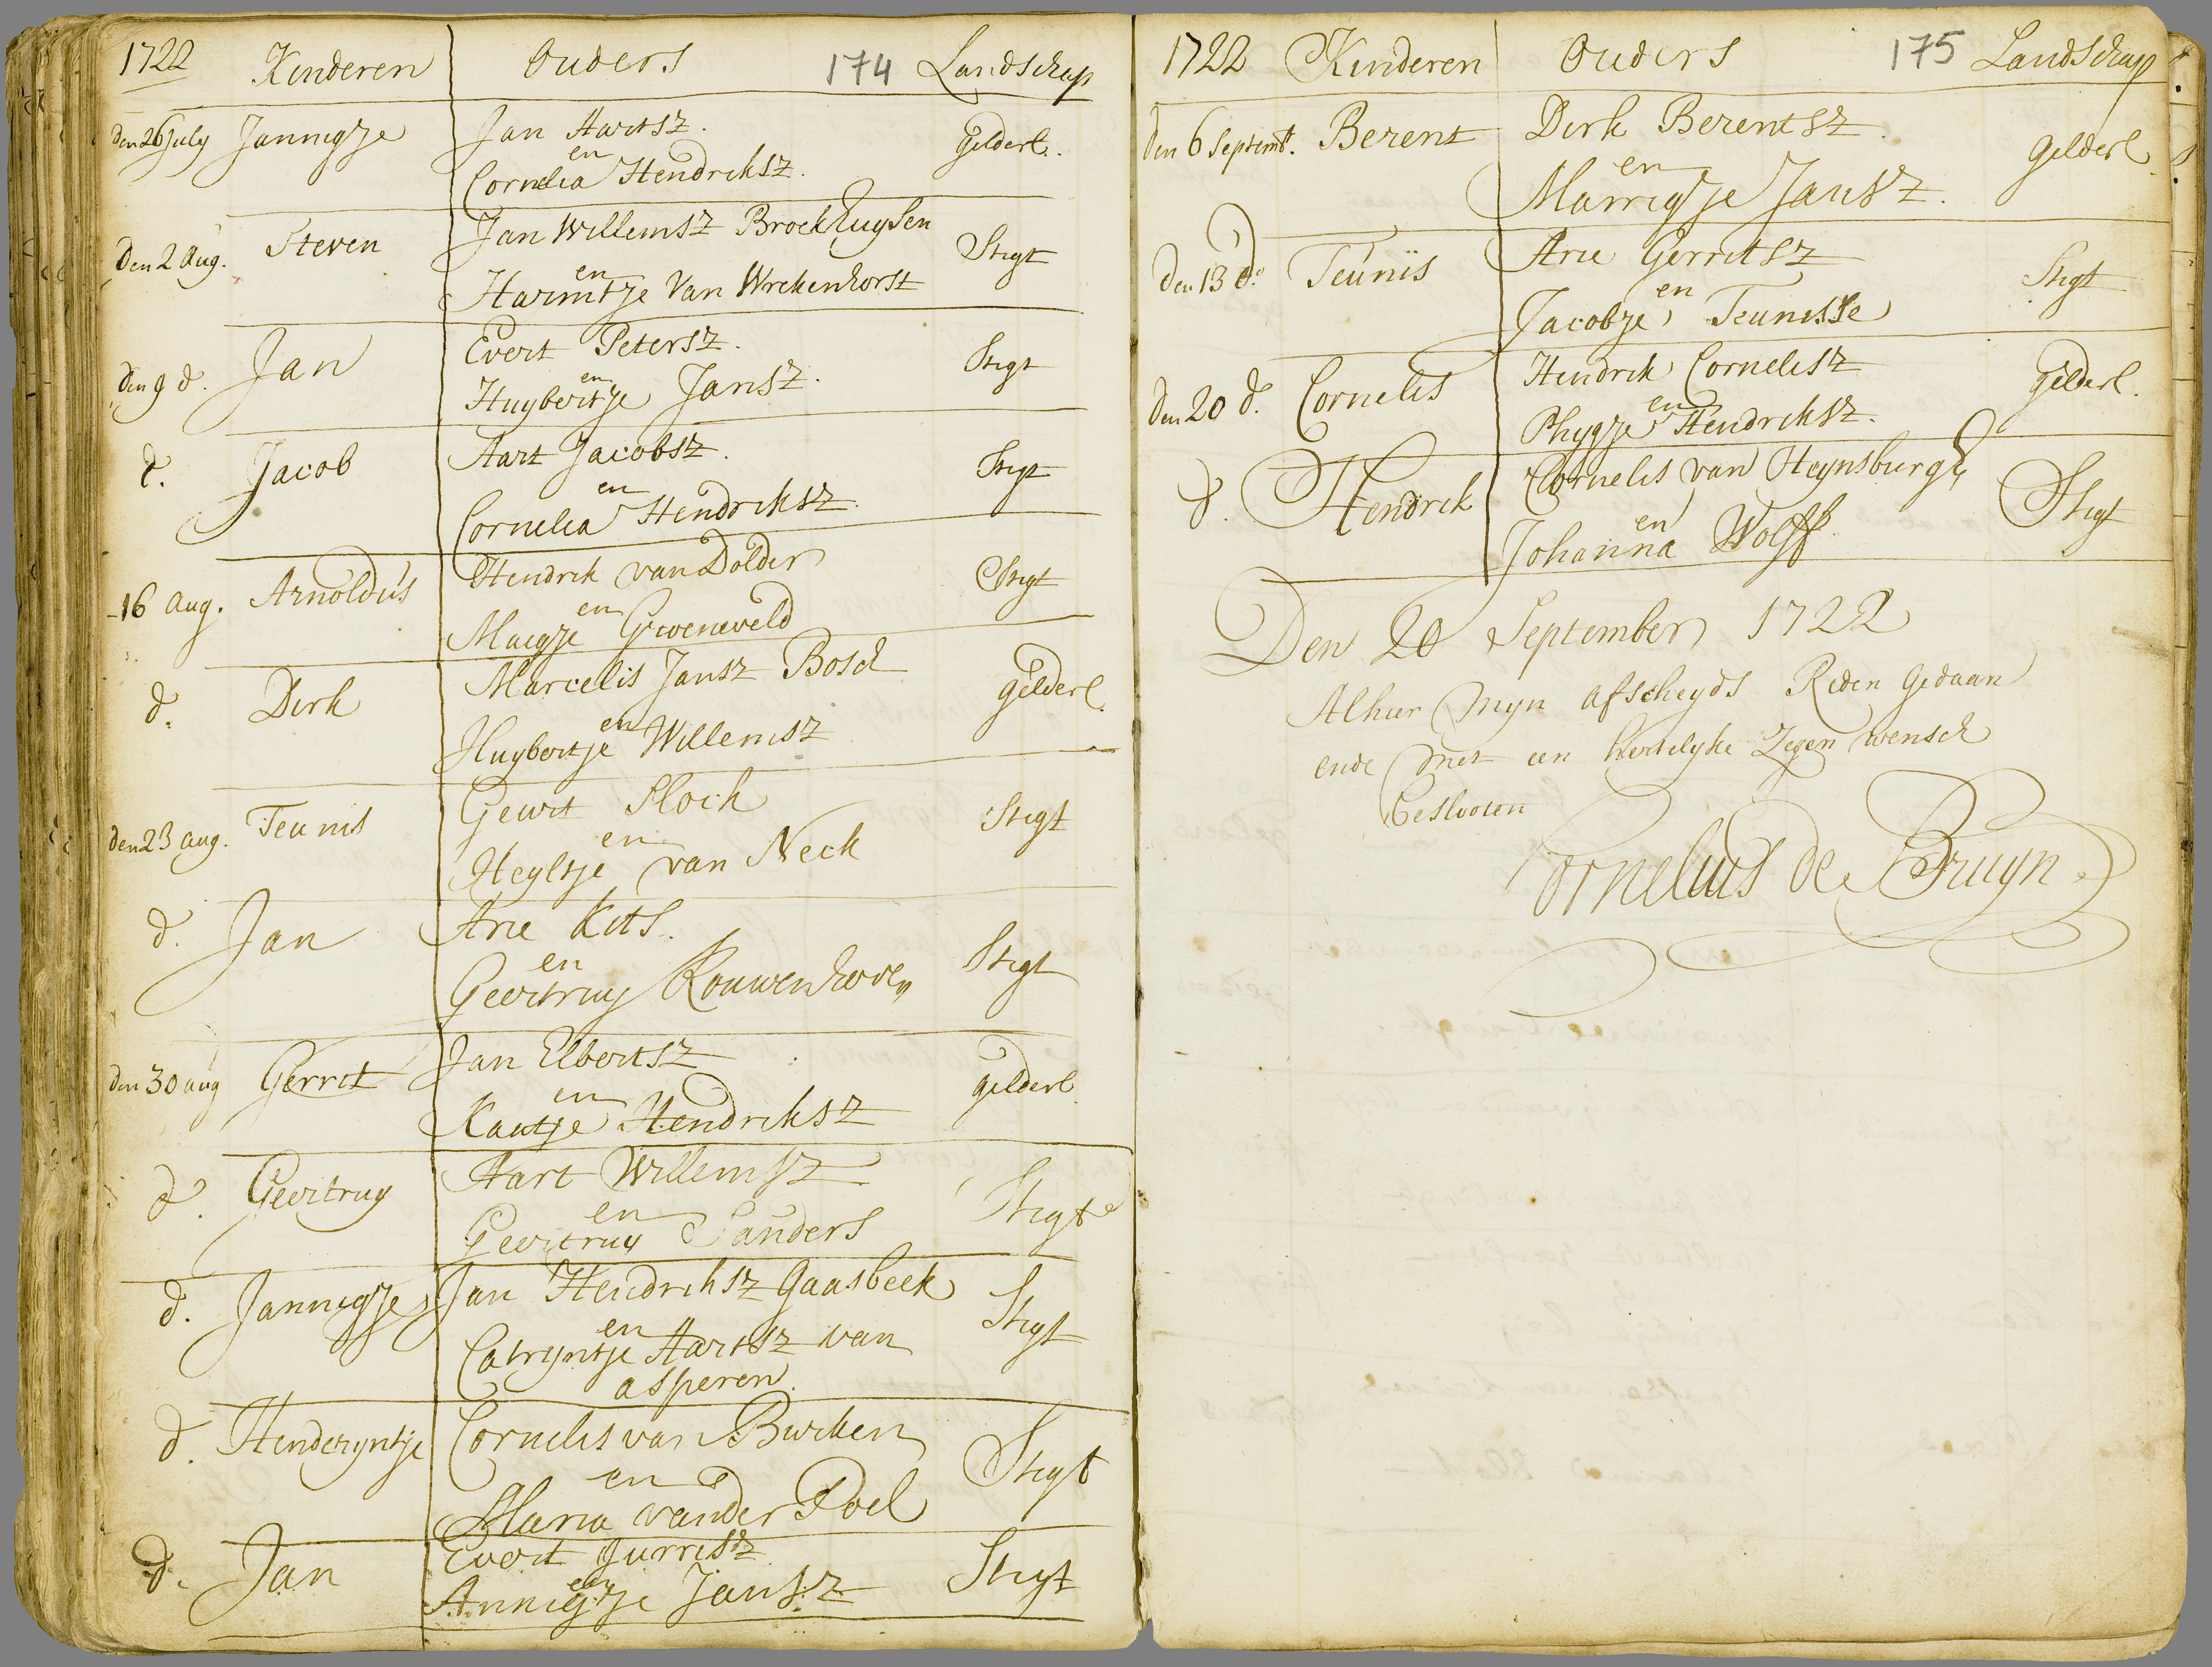 1722 Kinderen Ouders 174 Landschap
den 26 July Jannigje Jan Aartsz. Gelderl.
en
Cornelia Hendriksz.
den 2 Aug. Steven Jan Willemsz Broekhuysen Stigt
en
Harmtje Van Wrekenhorst
den 9 d. Jan Evert Petersz. Stigt
en
Huybertje Jansz.
d. Jacob Aart Jacobsz. Stigt
en
Cornelia Hendriksz.
16 Aug. Arnoldus Hendrik van Dolder Stigt
en
Maegje Groeneveld
d. Dirk Marcelis Jansz Bosch Gelderl.
en
Huybertje Willemsz
den 23 Aug. Teunis Geurt Slock Stigt
en
Heyltje van Neck
d. Jan Arie Kits. Stigt
en
Geertruy Kouwenhoven
den 30 aug Gerrit Jan Elbertsz gelderl.
en
Kaatje Hendriksz
d. Geertruy Aart Willemsz Stigt
en
Geertruy Sanders
d. Jannigje Jan Hendriksz Gaasbeek Stigt
en
Catryntje Aartsz van
asperen
d. Henderyntje Cornelis van Burken Stigt
en
Maria vander Poel
d. Jan Evert Jurrisz Stigt
en
Annigje Jansz
1722 Kinderen Ouders 175 Landschap
den 6 Septemb. Berent Dirk Berentsz. gelderl.
en
Marrigje Jansz.
den 13 do. Teunis Arie Gerritsz Stigt
en
Jacobje Teunisse
den 20 d. Cornelis Hendrik Cornelisz Gelderl.
en
Phygje Hendriksz.
d. Hendrick Cornelis van Heynsburgh Stigt
en
Johanna Wolff
Den 20 September 1722
Alhier Mijn afscheyds Reden gedaan
ende Met een hertelyke Zegen wensch
Geslooten
Cornelius de Bruyn.